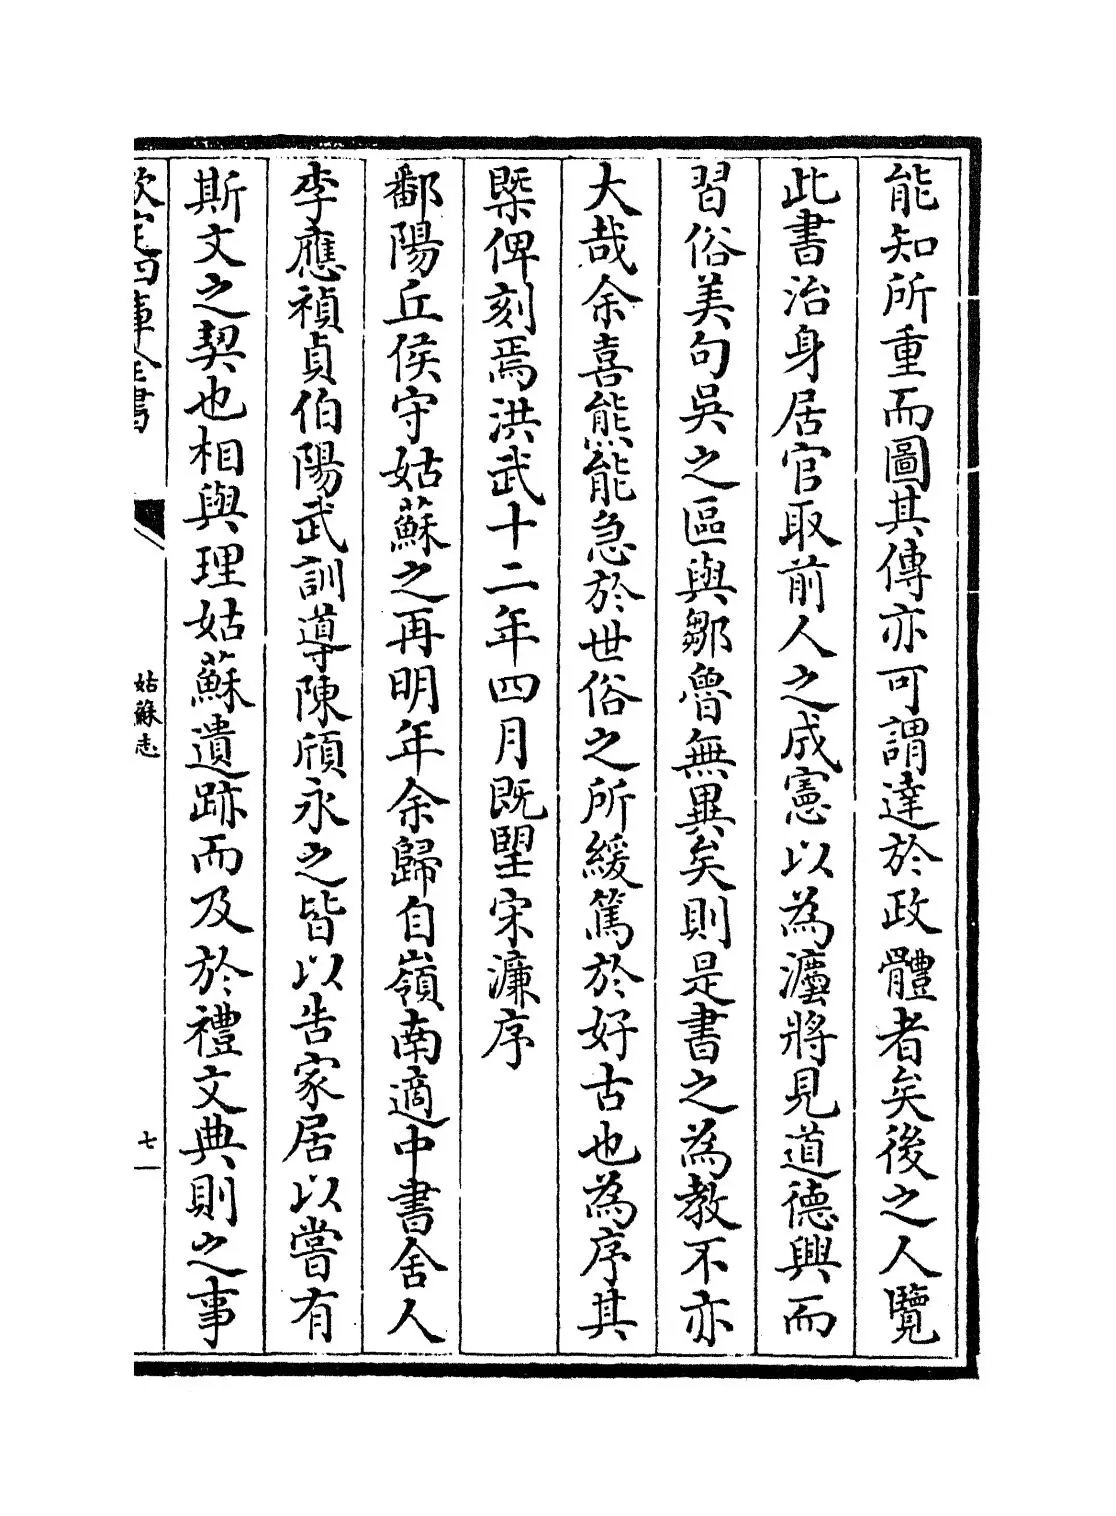 能知所重而圖其傳亦可謂達於政體者矣後之人覽
此書治身居官取前人之成憲以為灋將見道德興而
習俗美句吳之區與鄒魯無異矣則是書之為教不亦
大哉余喜熊能急於世俗之所緩篤於好古也為序其
槩俾刻焉洪武十二年四月既望宋濂序
鄱陽丘侯守姑蘇之再明年余歸自嶺南適中書舍人
李應禎貞伯陽武訓導陳頎永之皆以告家居以嘗有
斯文之契也相與理姑蘇遺跡而及於禮文典則之事
欽定四庫全書
姑蘇志
七